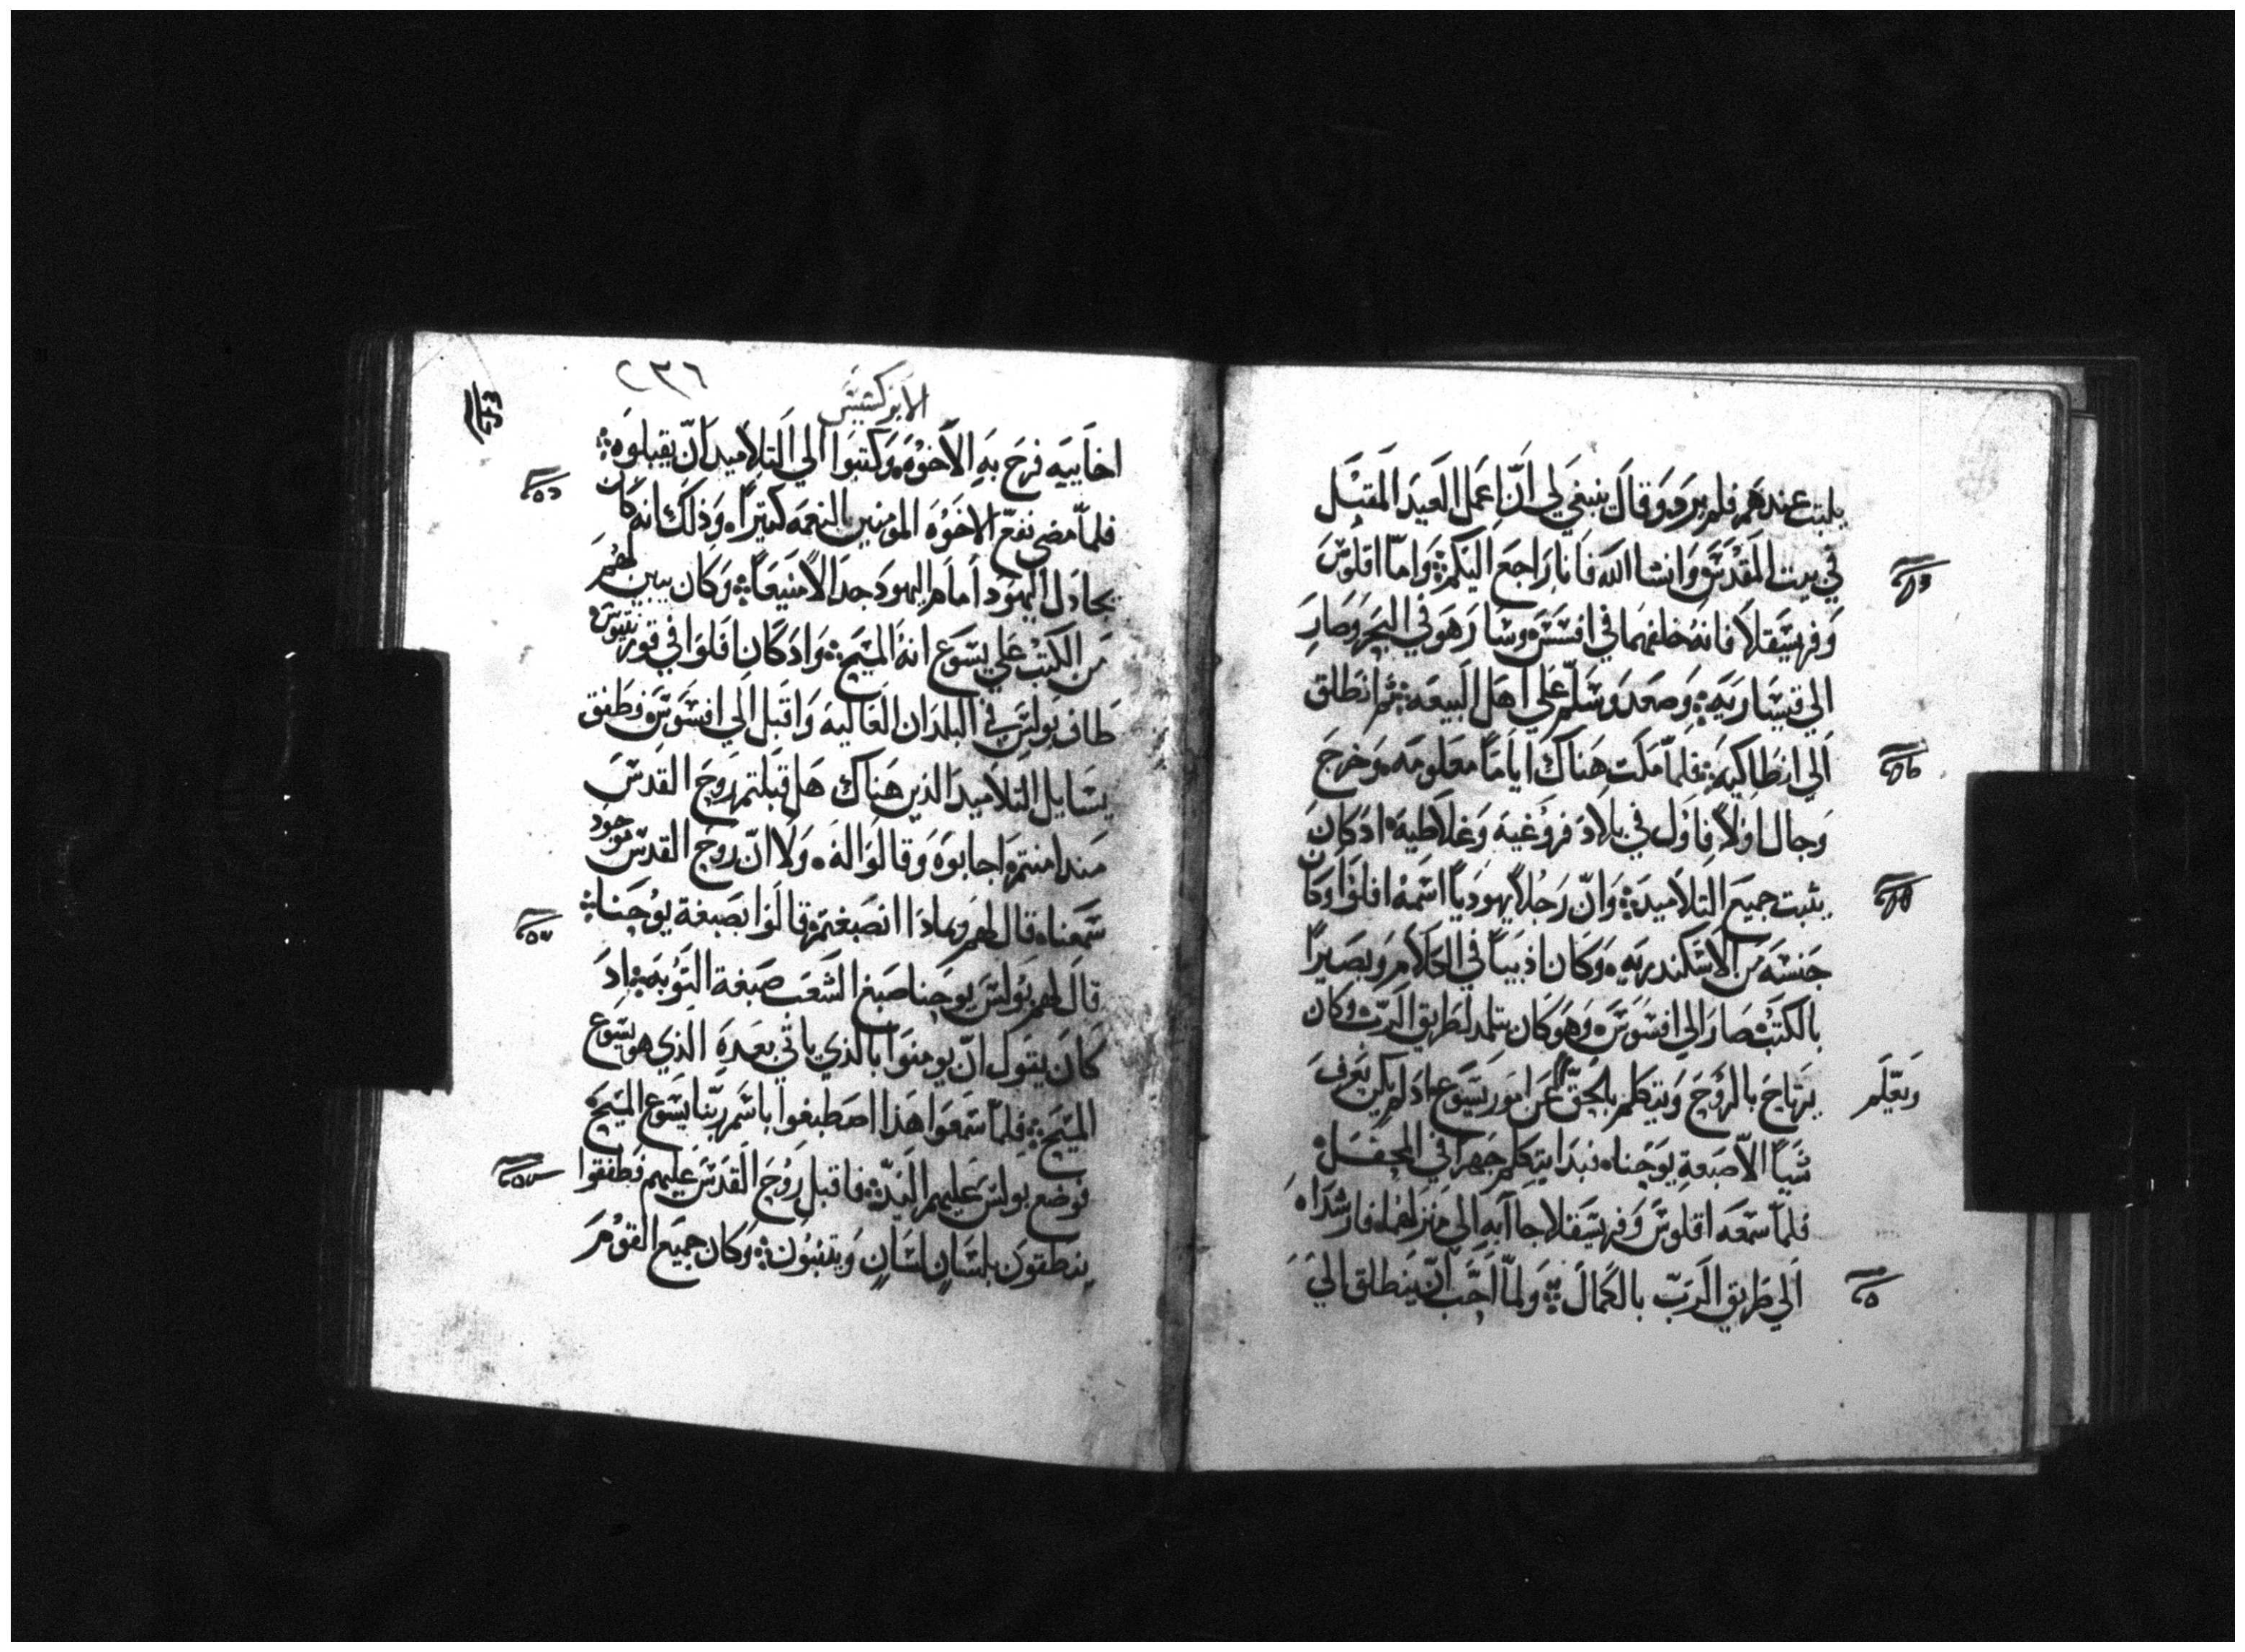 يلبت عندهم فلم يرد وقال ينبغي لي ان اعمل العيد المقبل
في بيت المقدس وانشا الله فانا راجع اليكم واما اقلوس
وفرسيقلا فانه خلفهما في افسس وسار هو في البحر وصار
الي قيساريه وصعد وسلم علي اهل البيعه ثم انطلق
الي انطاكيه فلما مكت هناك اياما معلومه وخرج
وجال اولا فاول في بلاد فروغيه وغلاطيه اد كان
يثبت جميع التلاميد وان رجلا يهوديا اسمه افلوا وكان
جنسه من الاسكندريه وكان اديبا في الكلام وبصيرا
بالكتب صار الي افسوس وهو كان يتلمد لطريق الرب وكان
يرتاح بالروح ويتكلم بالحق عن امور يسوع اد لم يكن يعرف
ويعلم
شيا الا صبغة يوحنا فبدا يتكلم جهرا في المحفل
فلما سمعه اقلوس وفرسيقلا جاآ به الي منزلهما فارشداه
الي طريق الرب بالكمال ولما احب ان ينطلق الي
٢٣٦
الابركسيس
اخاييه فرح به الاخوه وكتبوا الي التلاميد ان يقبلوه
فلما مضي نفع الاخوه المومنين بالنعمه كتيرا وذلك انه كان
يجادل اليهود امام اليهود جدالا منيعا وكان يبين لهم
من الكتب علي يسوع انه المسيح واد كان افلوا في قورنتيوس
طاف بولس في البلدان العاليه واقبل الي افسوس فطفق
يسايل التلاميد الدين هناك هل قبلتم روح القدس
مند امنتم اجابوه وقالوا له ولا ان روح القدس موجود
سمعنا قال لهم وبمادا انصبغتم قالوا بصبغة يوحنا
قال لهم بولس يوحنا صبغ الشعب صبغة التوبه اد
كان يقول ان يومنوا بالذي ياتي بعده الذي هو يسوع
المسيح فلما سمعوا هذا اصطبغوا باسم ربنا يسوع المسيح
فوضع بولس عليهم اليد فاقبل روح القدس عليهم فطفقوا
ينطقون بلسان لسان ويتنبون وكان جميع القوم